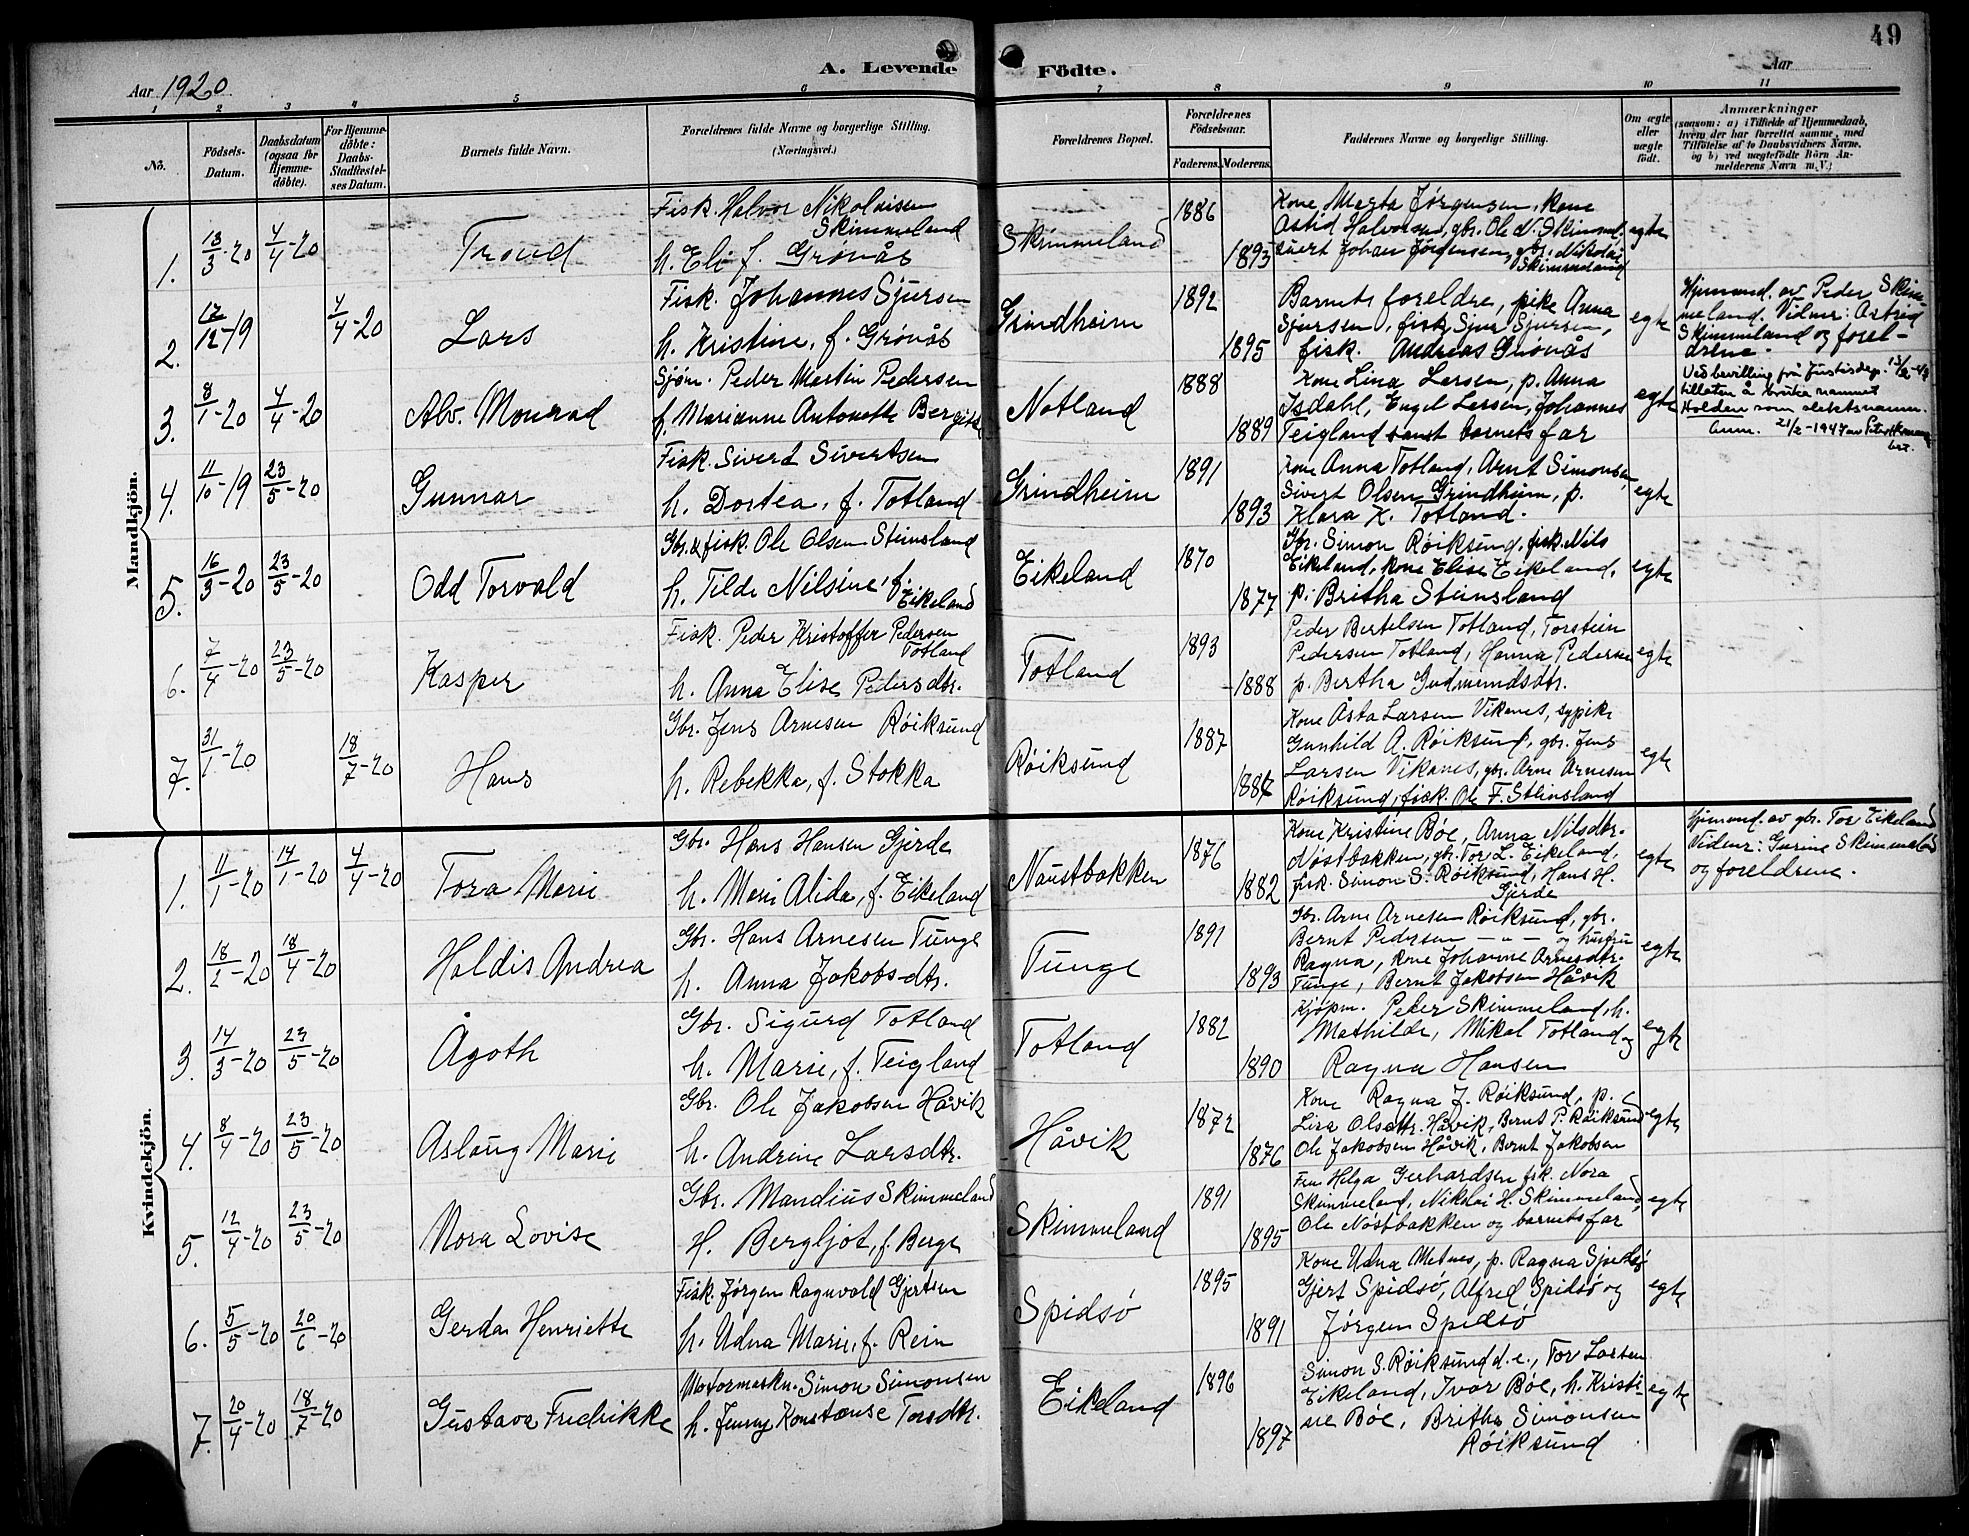 49
A. Levende Födte.
Aar 1920
Aar
1 2 3 4 5 6 7 8 9 10 11
No.
Födsels-Datum.
Daabsdatum (ogsaa for Hjemmedöbte).
For Hjemmedöbte: Daabs-Stadfæstelses Datum.
Barnets fulde Navn.
Forældrenes fulde Navne og borgerlige Stilling. (Næringsvei.)
Forældrenes Bopæl.
Forældrenes Födselsaar.
Faderens. Moderens.
Faddernes Navne og borgerlige Stilling.
Om ægte eller uægte født.
Anmærkninger
(saasom: a) i Tilfælde af Hjemmedaab, hvem der har forrettet samme, med Tilföielse af to Daabsvidners Navne, og b) ved uægtefödte Börn Anmelderens Navn m.V.)
Mandkjön.
1. 13/3-20 4/4-20 Trond
Fisk. Halvor Nikolaisen
Skimmeland
h. Eli f. Grønås
Skimmeland 1886 1893
Kone Marta Jørgensen, kone
Astid Halvorsen, gbr. Ole N. Skimmel.
Sivert Johan Jørgensen, gbr. Nikolai
Skimmeland
egte
2. 12/12-19 4/4-20 Lars
Fisk. Johannes Sjursen
h. Kristine, f. Grønås
Grindheim 1892 1895
Barnets foreldre, pike Anna
Sjursen, fisk. Sjur Sjursen,
fisk. Andreas Grønås
egte
Hjemmed. av Peder Skim-
meland. Vidner: Astrid
Skimmeland og forel-
drene.
3. 8/1-20 4/4-20 Alv. Monrad
Sjøm. Peder Martin Pedersen
f. Marianne Antonette Bergitte
Notland 1888 1889
Kone Lina Larsen, p. Anna
Isdahl, Engel Larsen, Johannes
Teigland samt barnets far
egte
Ved bevilling frå Justisdep.
tillaten å bruke namnet
Holden som slektsnamn.
Anm. 21/2-1947
4. 11/10-19 23/5-20 Gunnar
Fisk. Sivert Sivertsen
h. Dortea, f. Totland
Grindheim 1891 1893
Kone Anna Totland, Arnt Simonsen,
Sivert Olsen Grindheim, p.
Klara K. Totland.
egte
5. 16/3-20 23/5-20 Odd Torvald
Gbr. & fisk. Ole Olsen Steinsland
h. Tilde Nilsine, f.
Eikeland
Eikeland 1870 1877
Gbr. Simon Røiksund, fisk. Nils
Eikeland, kone Elise Eikeland,
p. Britha Steinsland
egte
6. 7/4-20 23/5-20 Kasper
Fisk. Peder Kristoffer Pedersen
Totland
h. Anna Elise Pedersdtr.
Totland 1893 1888
Peder Bertelsen Totland, Torstein
Pedersen Totland, Hanna Pedersen
p. Bertha Gudmundsdtr.
egte
7. 31/1-20 18/7-20 Hans
Gbr. Jens Arnesen Røiksund
h. Rebekka, f. Stokka
Røiksund 1887
Kone Åsta Larsen Vikanes, sypike
Gunhild A. Røiksund, gbr. Jens
Larsen Vikanes, gbr. Arne Arnesen
Røiksund, fisk. Ole F. Steinsland
egte
Kvindekjön.
1. 11/1-20 14/1-20 4/4-20 Tora Marie
Gbr. Hans Hansen Gjerde
h. Mari Alida, f. Eikeland
Naustbakken 1876 1882
Kone Kristine Bøe, Anna Nilsdtr.
Nøstbakken, gbr. Tor L. Eikeland,
fisk. Simon S. Røiksund, Hans H.
Gjerde
egte
Hjemmd. av gbr. Tor Eikeland
Vidner: Gurine Skimmeland
og foreldrene.
2. 18/2-20 18/4-20 Haldis Andrea
Gbr. Hans Arnesen Tunge
h. Anna Jakobsdtr.
Tunge 1891 1893
Gbr. Arne Arnesen Røiksund, gbr.
Bernt Pedersen — " — og hustru
Ragna, kone Johanne Arnesdtr.
Tunge, Bernt Jakobsen Håvik
egte
3. 14/3-20 23/5-20 Ågoth
Gbr. Sigurd Totland
h. Marie, f. Teigland
Totland 1882 1890
Kjøpm. Peder Skimmeland, h.
Mathilde, Mikal Totland og
Ragna Hansen
egte
4. 8/4-20 23/5-20 Aslaug Marie
Gbr. Ole Jakobsen Håvik
h. Andrine Larsdtr.
Håvik 1872 1876
Kone Ragna J. Røiksund, p.
Lisa Olsdtr. Håvik, Bernt P. Røiksund
Ole Jakobsen Håvik, Bernt Jakobsen
egte
5. 12/4-20 23/5-20 Nora Lovise
Gbr. Mandius Skimmeland
H. Bergljot, f. Berge
Skimmeland 1891 1895
Fru Helga Gerhardsen, frk. Nora
Skimmeland, Nikolai H. Skimmeland,
Ole Nøstbakken og barnets far
egte
6. 5/5-20 20/6-20 Gerda Henriette
Fisk. Jørgen Ragnvald Gjertsen
h. Udna Marie, f. Rein
Spidsø 1895 1891
Kone Udna Metnes, p. Ragna Spidsø
Gjert Spidsø, Alfred Spidsø og
Jørgen Spidsø
egte
7. 20/4-20 18/7-20 Gustava Fredrikke
Motormaskn. Simon Simonsen
h. Jenny Konstanse Torsdtr.
Eikeland 1896 1897
Simon S. Røiksund d.e., Tor Larsen
Eikeland, Ivar Bøe, h. Kristi-
ne Bøe, Britha Simonsen
Røiksund
egte